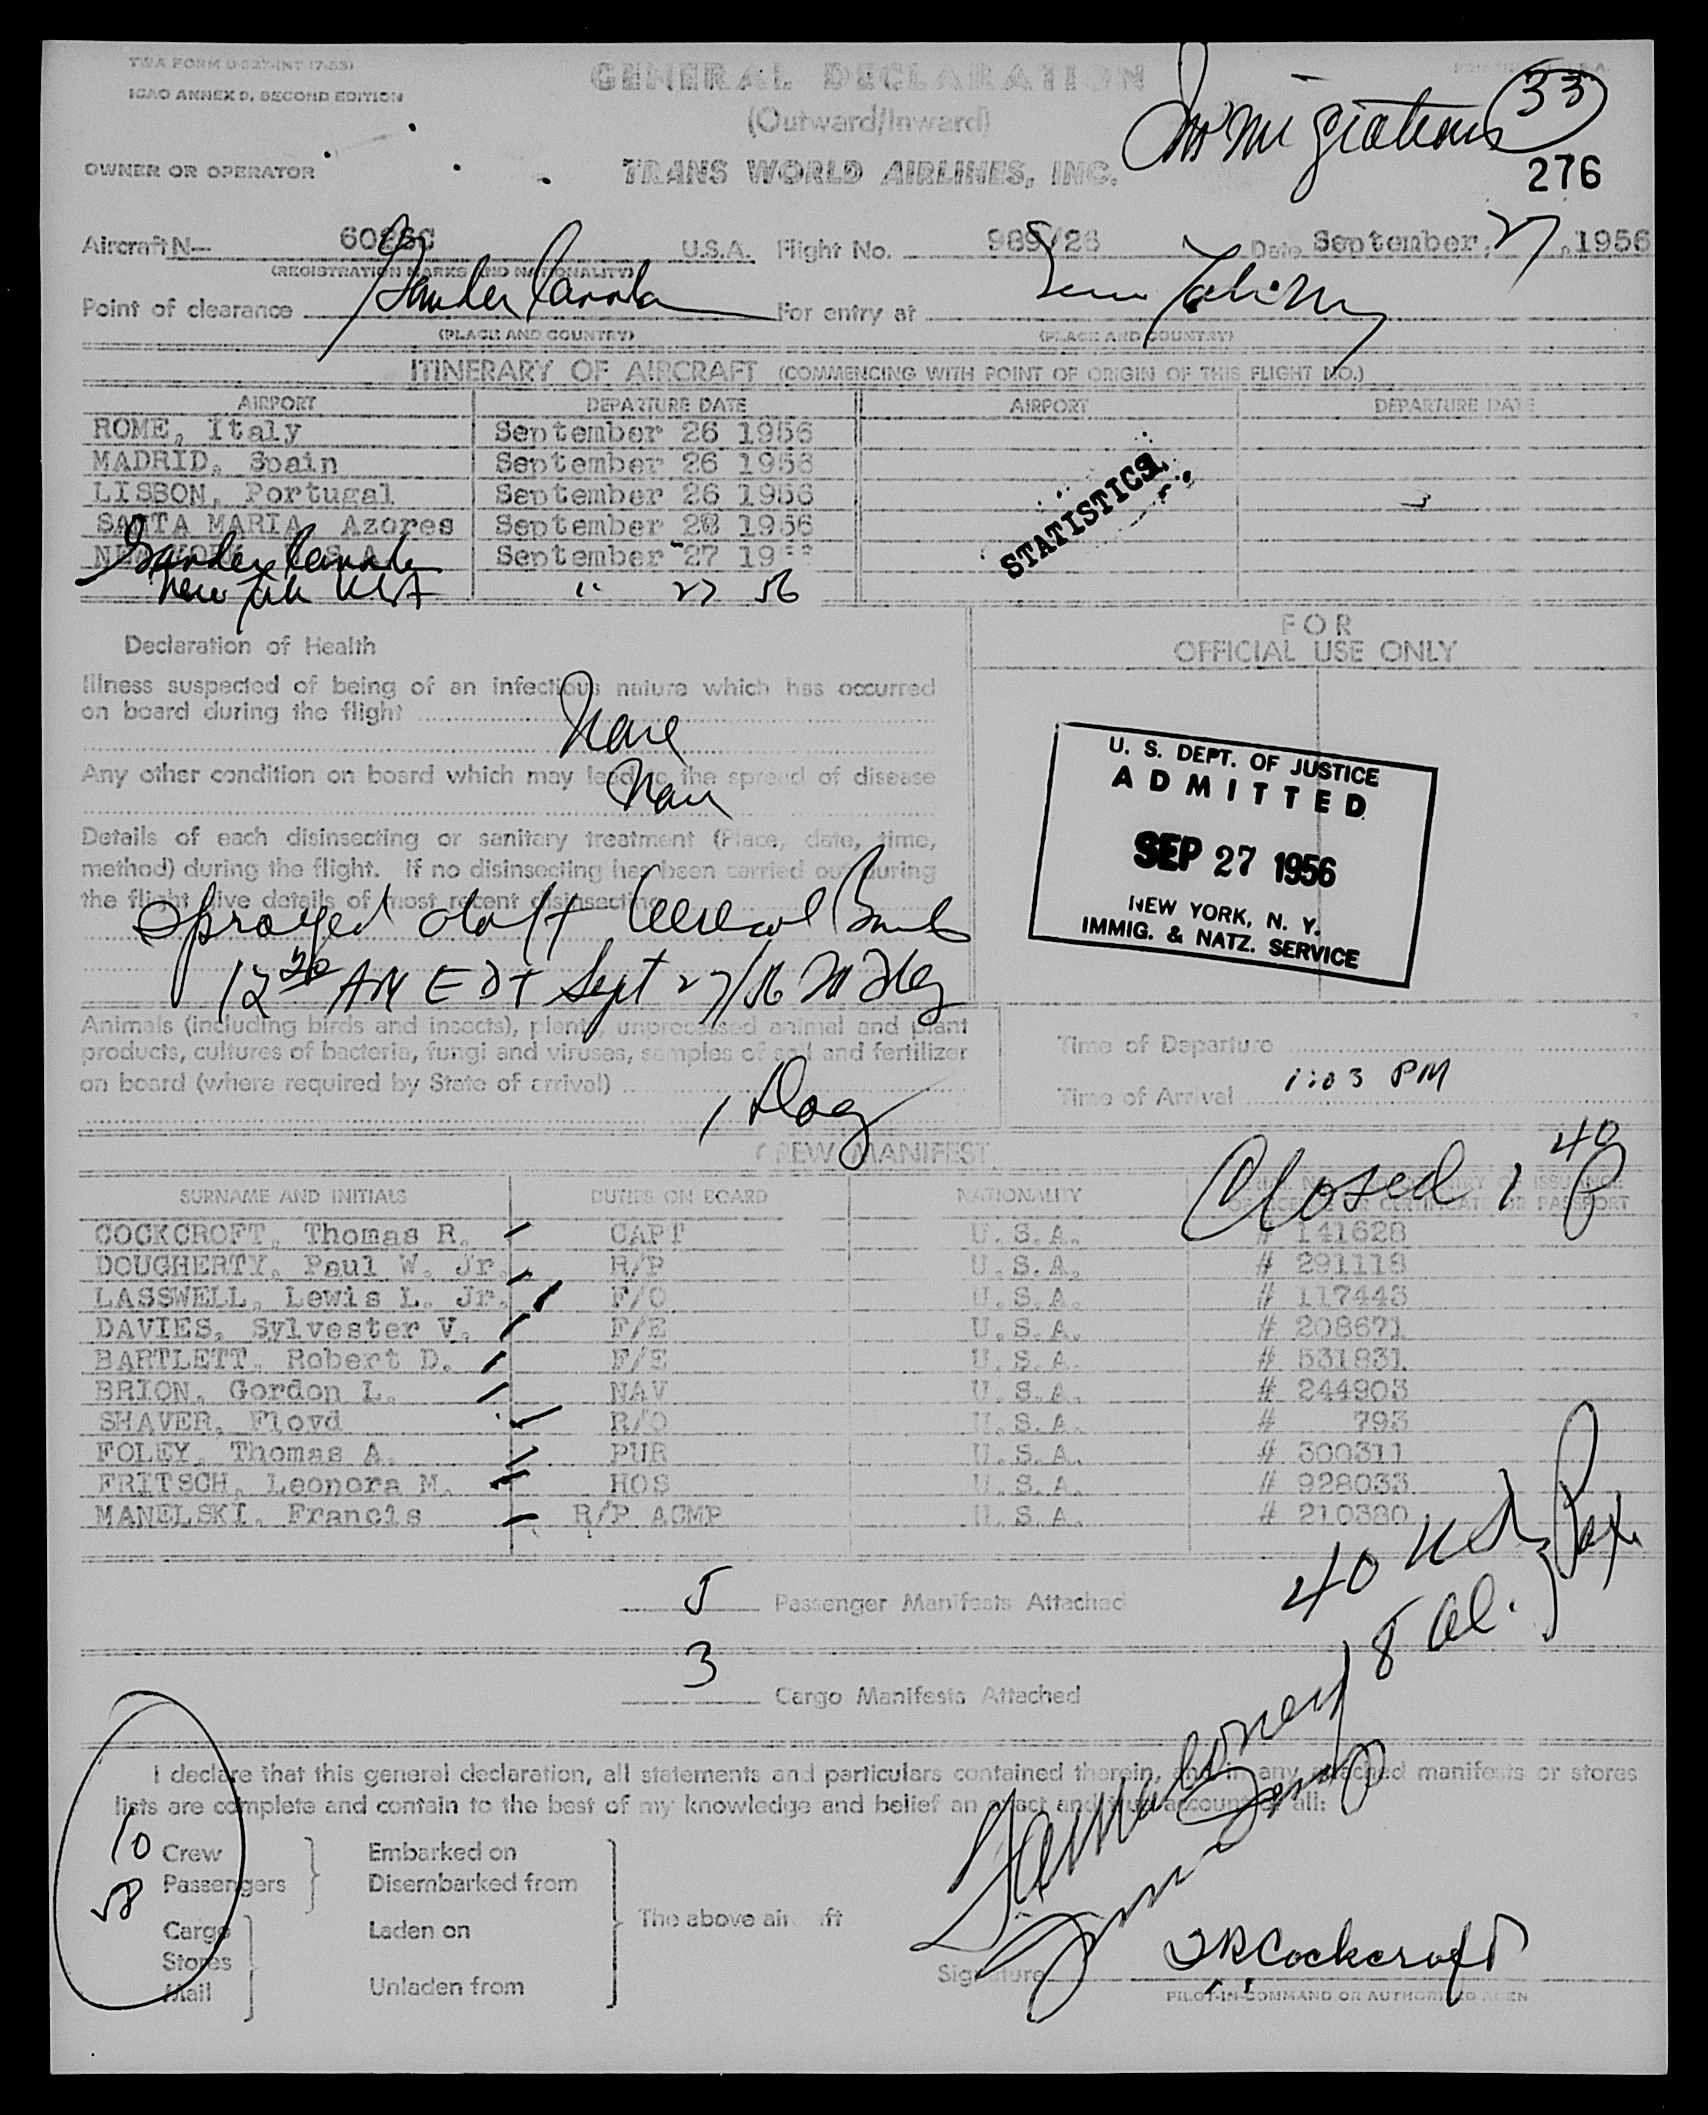 TWA FORM
ICAO ANNEX 9, SECOND EDITION
GENERAL DECLARATION
(Outward/Inward)
Immigration 33
276
OWNER OR OPERATOR
TRANS WORLD AIRLINES, INC.
Aircraft N— U.S.A. Flight No. 989/26 Date September 27, 1956
(REGISTRATION MARKS AND NATIONALITY)
Point of clearance Gander Canada For entry at New York NY
(PLACE AND COUNTRY) (PLACE AND COUNTRY)
ITINERARY OF AIRCRAFT (COMMENCING WITH POINT OF ORIGIN OF THIS FLIGHT NO.)
AIRPORT DEPARTURE DATE AIRPORT DEPARTURE DATE
ROME, Italy September 26 1956
MADRID, Spain September 26 1956
LISBON, Portugal September 26 1956
SANTA MARIA, Azores September 26 1956
Gander Canada September 27 19
New York USA " 27 56
STATISTICS
Declaration of Health
FOR
OFFICIAL USE ONLY
Illness suspected of being of an infectious nature which has occurred
on board during the flight
None
Any other condition on board which may lead to the spread of disease
None
Details of each disinsecting or sanitary treatment (Place, date, time,
method) during the flight. If no disinsecting has been carried out during
the flight give details of most recent disinsecting
Sprayed aloft Aerosol Bomb
12 30 AM EDT Sept 27/56
U. S. DEPT. OF JUSTICE
ADMITTED
SEP 27 1956
NEW YORK, N. Y.
IMMIG. & NATZ. SERVICE
Animals (including birds and insects), plants, unprocessed animal and plant
products, cultures of bacteria, fungi and viruses, samples of soil and fertilizer
on board (where required by State of arrival)
1 Dog
Time of Departure
Time of Arrival 1:03 PM
CREW MANIFEST
Closed 1 40 P
SURNAME AND INITIALS DUTIES ON BOARD NATIONALITY
COCKCROFT, Thomas R. CAPT U.S.A. # 141628
DOUGHERTY, Paul W. Jr. R/P U.S.A. # 291118
LASSWELL, Lewis L. Jr. F/O U.S.A. # 117443
DAVIES, Sylvester V. F/E U.S.A. # 208671
BARTLETT, Robert D. F/E U.S.A. # 531831
BRION, Gordon L. NAV U.S.A. # 244903
SHAVER, Floyd R/O U.S.A. # 793
FOLEY, Thomas A. PUR U.S.A. # 300311
FRITSCH, Leonora M. HOS U.S.A. # 928033
MANELSKI, Francis R/P ACMP U.S.A. # 210380
40 US Pax
8 Al.
5 Passenger Manifests Attached
3 Cargo Manifests Attached
I declare that this general declaration, all statements and particulars contained therein, and in any attached manifests or stores
lists are complete and contain to the best of my knowledge and belief an exact and true account of all:
10 Crew Embarked on
58 Passengers Disembarked from
The above aircraft
Cargo Laden on
Stores
Mail Unladen from
Signature TR Cockcroft
PILOT-IN-COMMAND OR AUTHORIZED AGENT